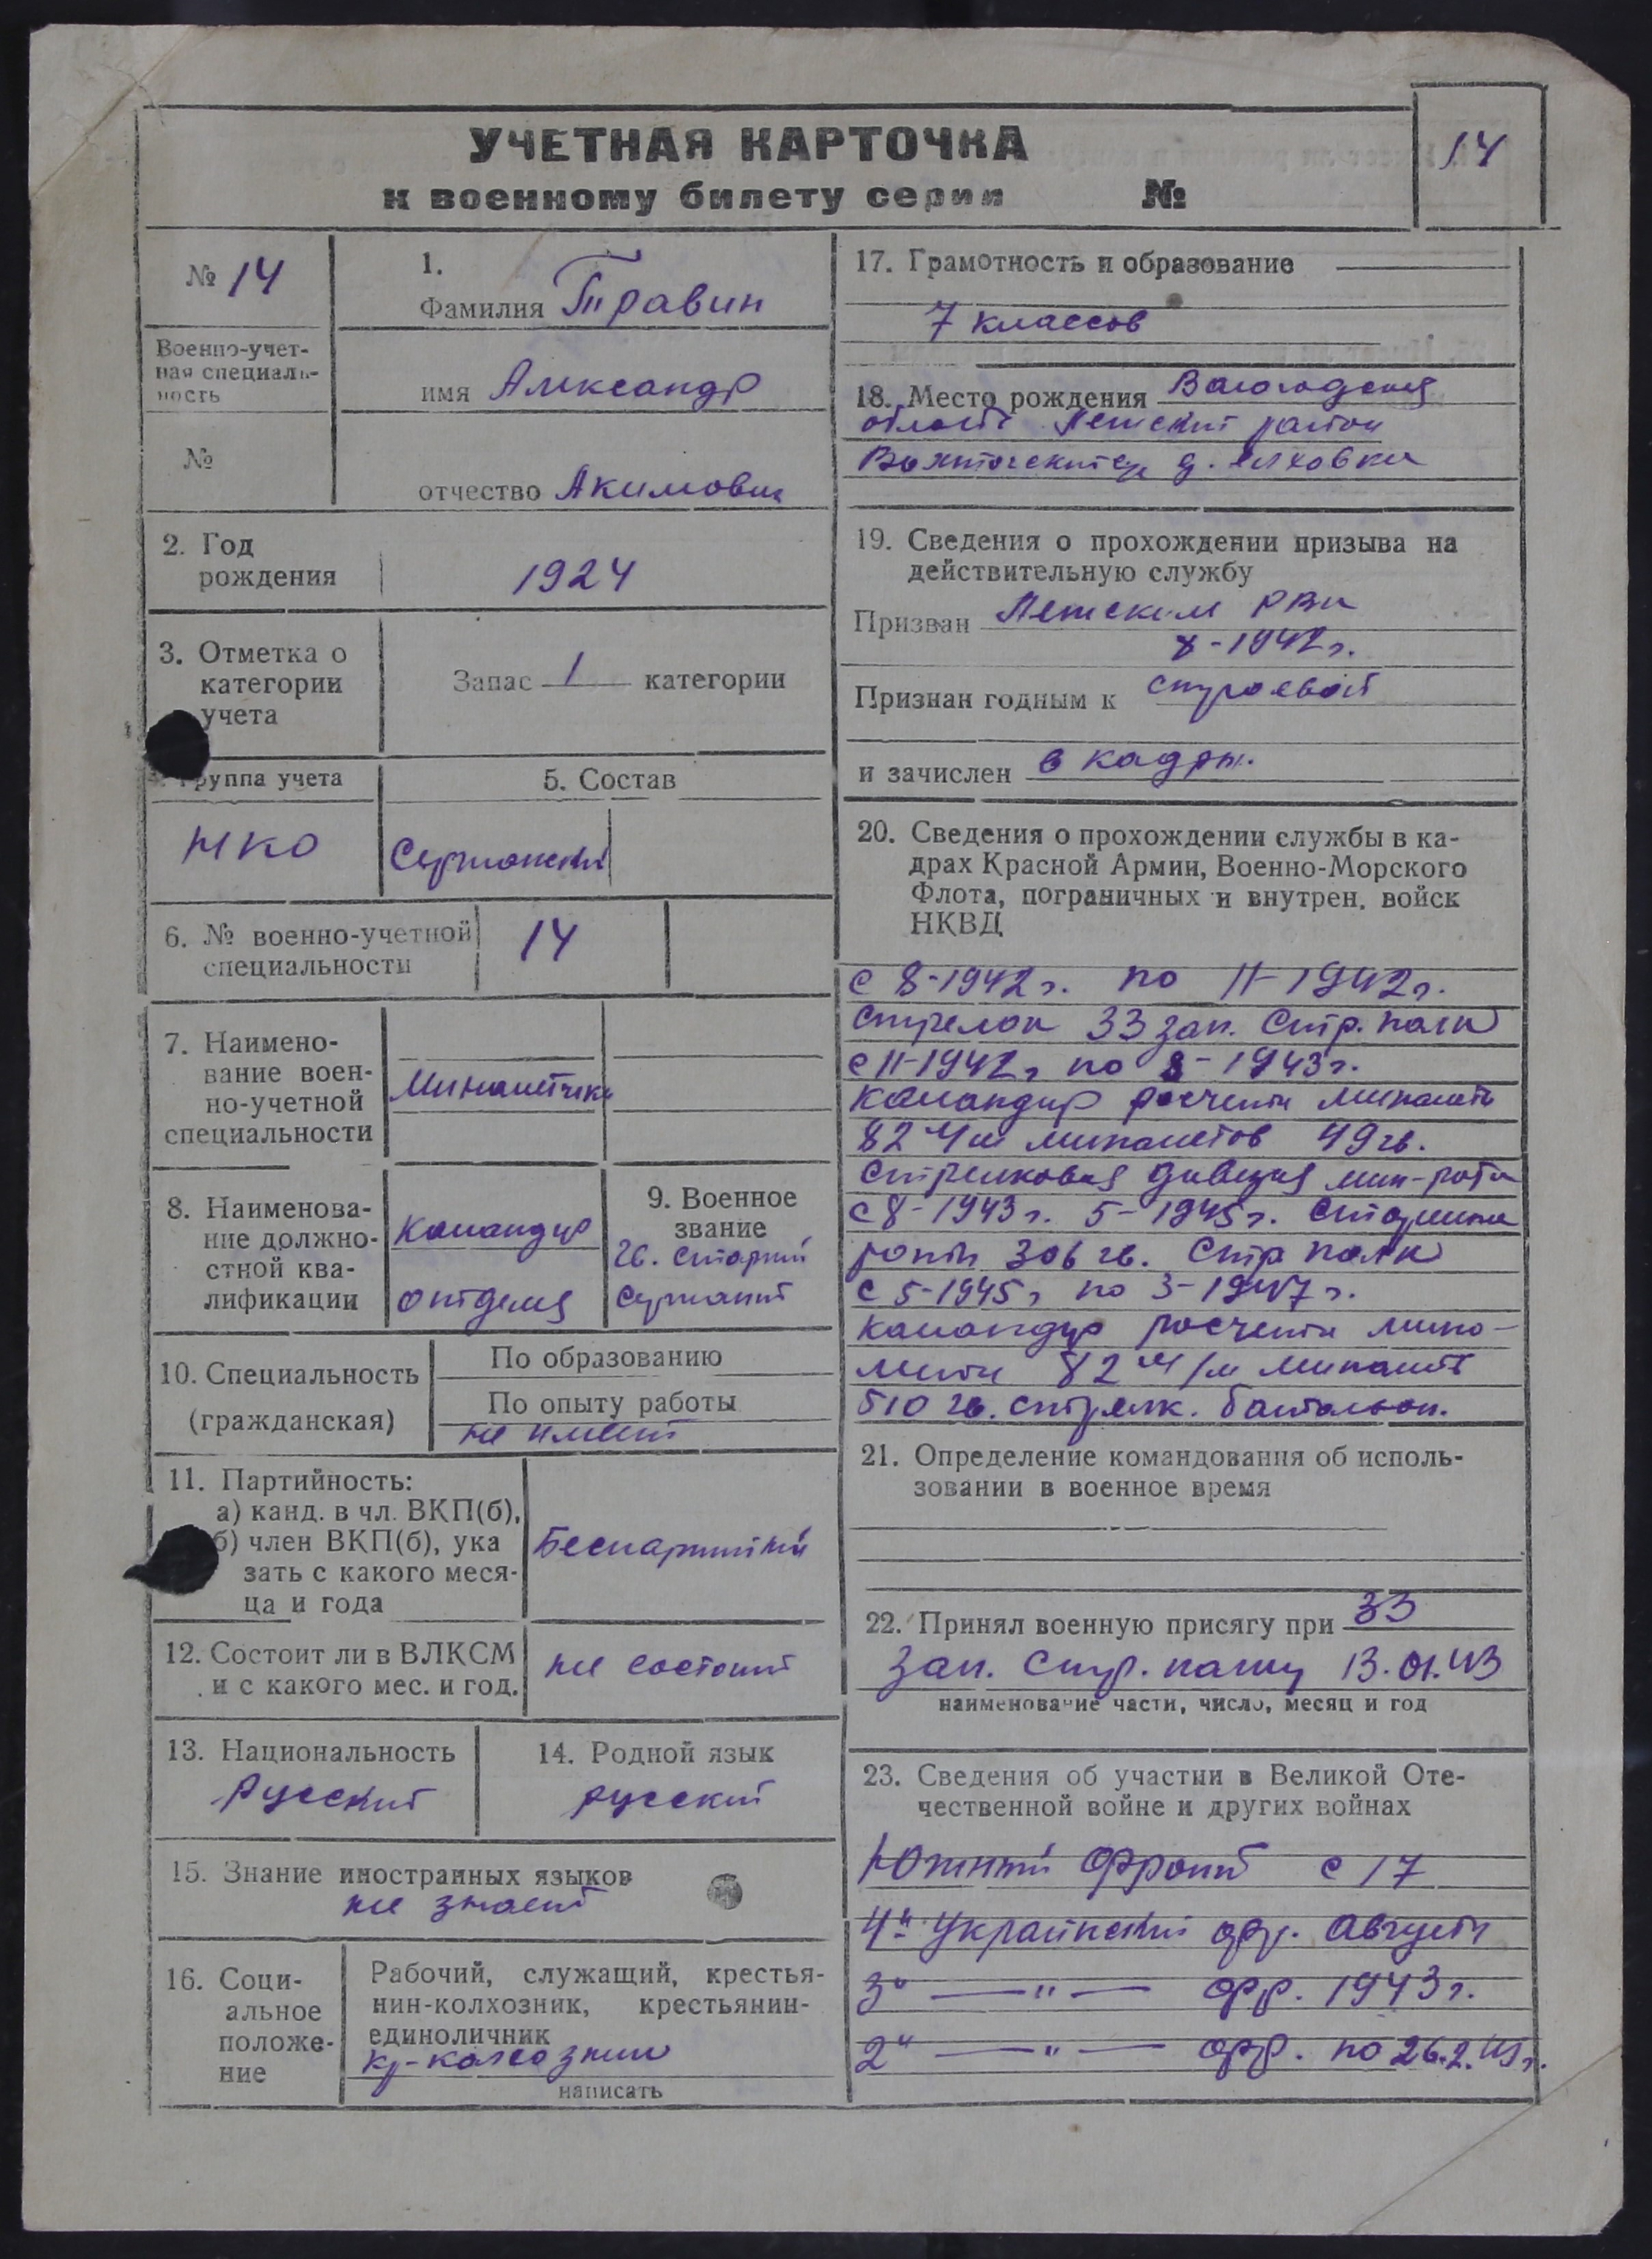 УЧЕТНАЯ КАРТОЧКА
к военному билету серии №
14
№ 14
Военно-учет-
ная специаль-
ность
№
1.
Фамилия Травин
имя Александр
отчество Акимович
2. Год
рождения
1924
3. Отметка о
категории
учета
Запас 1 категории
Группа учета
5. Состав
НКО
Сержанский
6. № военно-учетной
специальности
14
7. Наимено-
вание воен-
но-учетной
специальности
Минометчики
8. Наименова-
ние должно-
стной ква-
лификации
Командир
отделе
9. Военное
звание
гв. старший
сержант
10. Специальность
(гражданская)
По образованию
По опыту работы
не имеет
11. Партийность:
а) канд. в чл. ВКП(б),
б) член ВКП(б), ука
зать с какого меся-
ца и года
Беспартийный
12. Состоит ли в ВЛКСМ
и с какого мес. и год.
не состоит
13. Национальность
Русский
14. Родной язык
русский
15. Знание иностранных языков
не знает
16. Соци-
альное
положе-
ние
Рабочий, служащий, крестья-
нин-колхозник, крестьянин-
единоличник
кр-колхозник
написать
17. Грамотность и образование
7 классов
18. Место рождения Вологодская
область Летский район
д.
19. Сведения о прохождении призыва на
действительную службу
Призван РВК
8-1942г.
Признан годным к строевой
и зачислен в кадры.
20. Сведения о прохождении службы в ка-
драх Красной Армии, Военно-Морского
Флота, пограничных и внутрен. войск
НКВД
с 8-1942г. по 11-1942г.
стрелок 33 зап. Стр. полк
с 11-1942г по 8-1943г.
командир расчета миномета
82 м/м минометов 49 гв.
стрелковая дивизия мин-рота
с 8-1943г. 5-1945г. Старшина
роты 306 гв. Стр полк
с 5-1945г по 3-1947г.
командир расчета мино-
мета 82 м/м миномет
510 гв. стрелк. батальон.
21. Определение командования об исполь-
зовании в военное время
22. Принял военную присягу при 33
зап. Стр. полку 13.01.43
наименование части, число, месяц и год
23. Сведения об участии в Великой Оте-
чественной войне и других войнах
Южный фронт с 17
4й Украинский фр. Августа
3й — " — фр. 1943г.
2й — " — фр. по 26.2.45г.